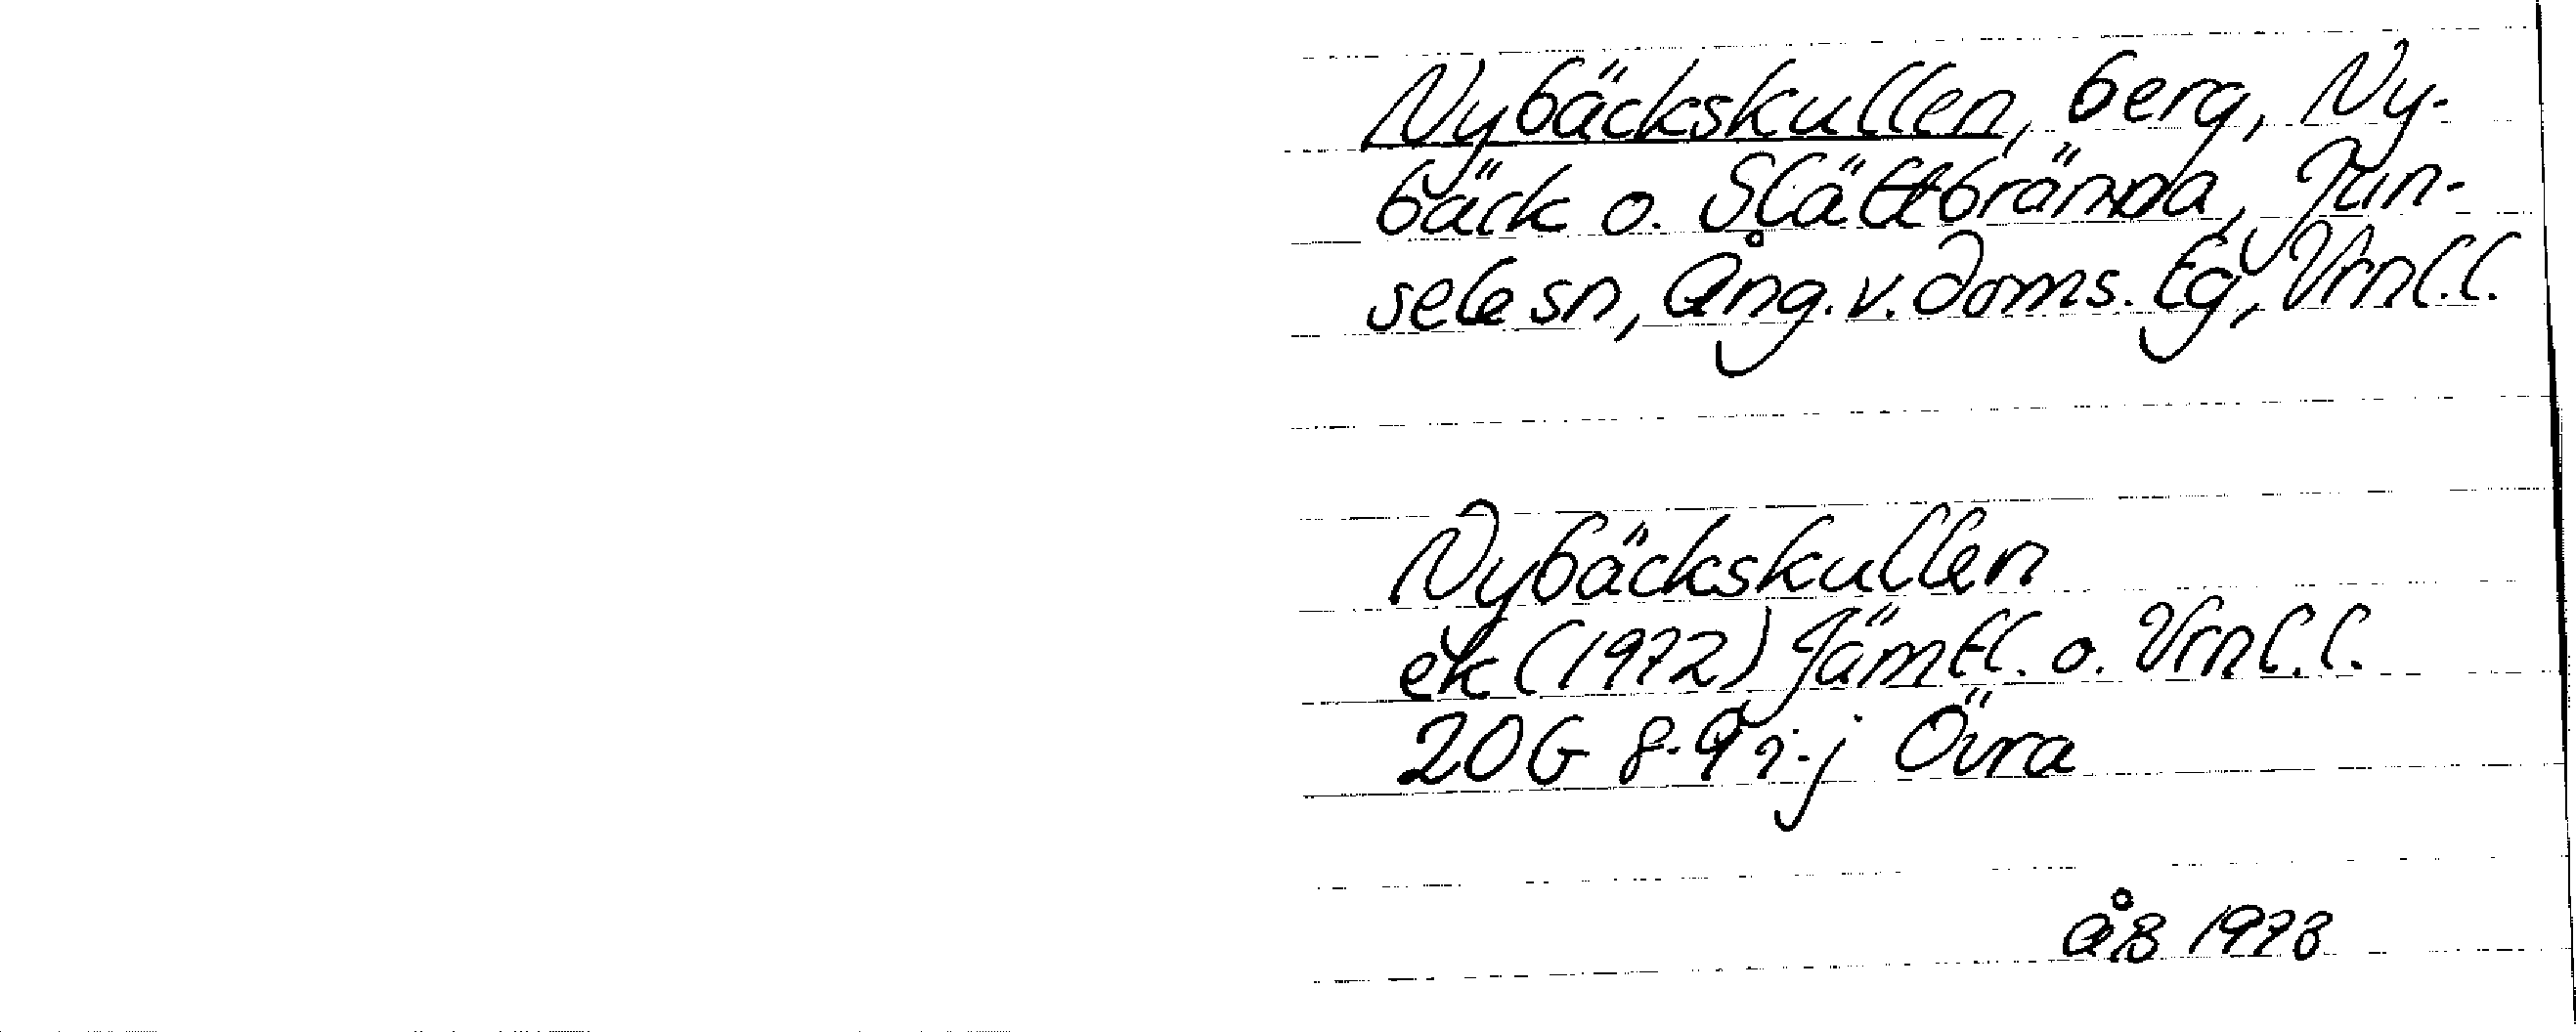 Nybäckskullen, berg, Ny-
bäck o. Slättbränna, Jun-
sele sn, Ång. v. doms. tg, Vrnl.l.
Nybäckskullen
ek (1972) Jämtl. o. Vrnl.l.
20G 8-9 i-j Övra
ÅB 1978